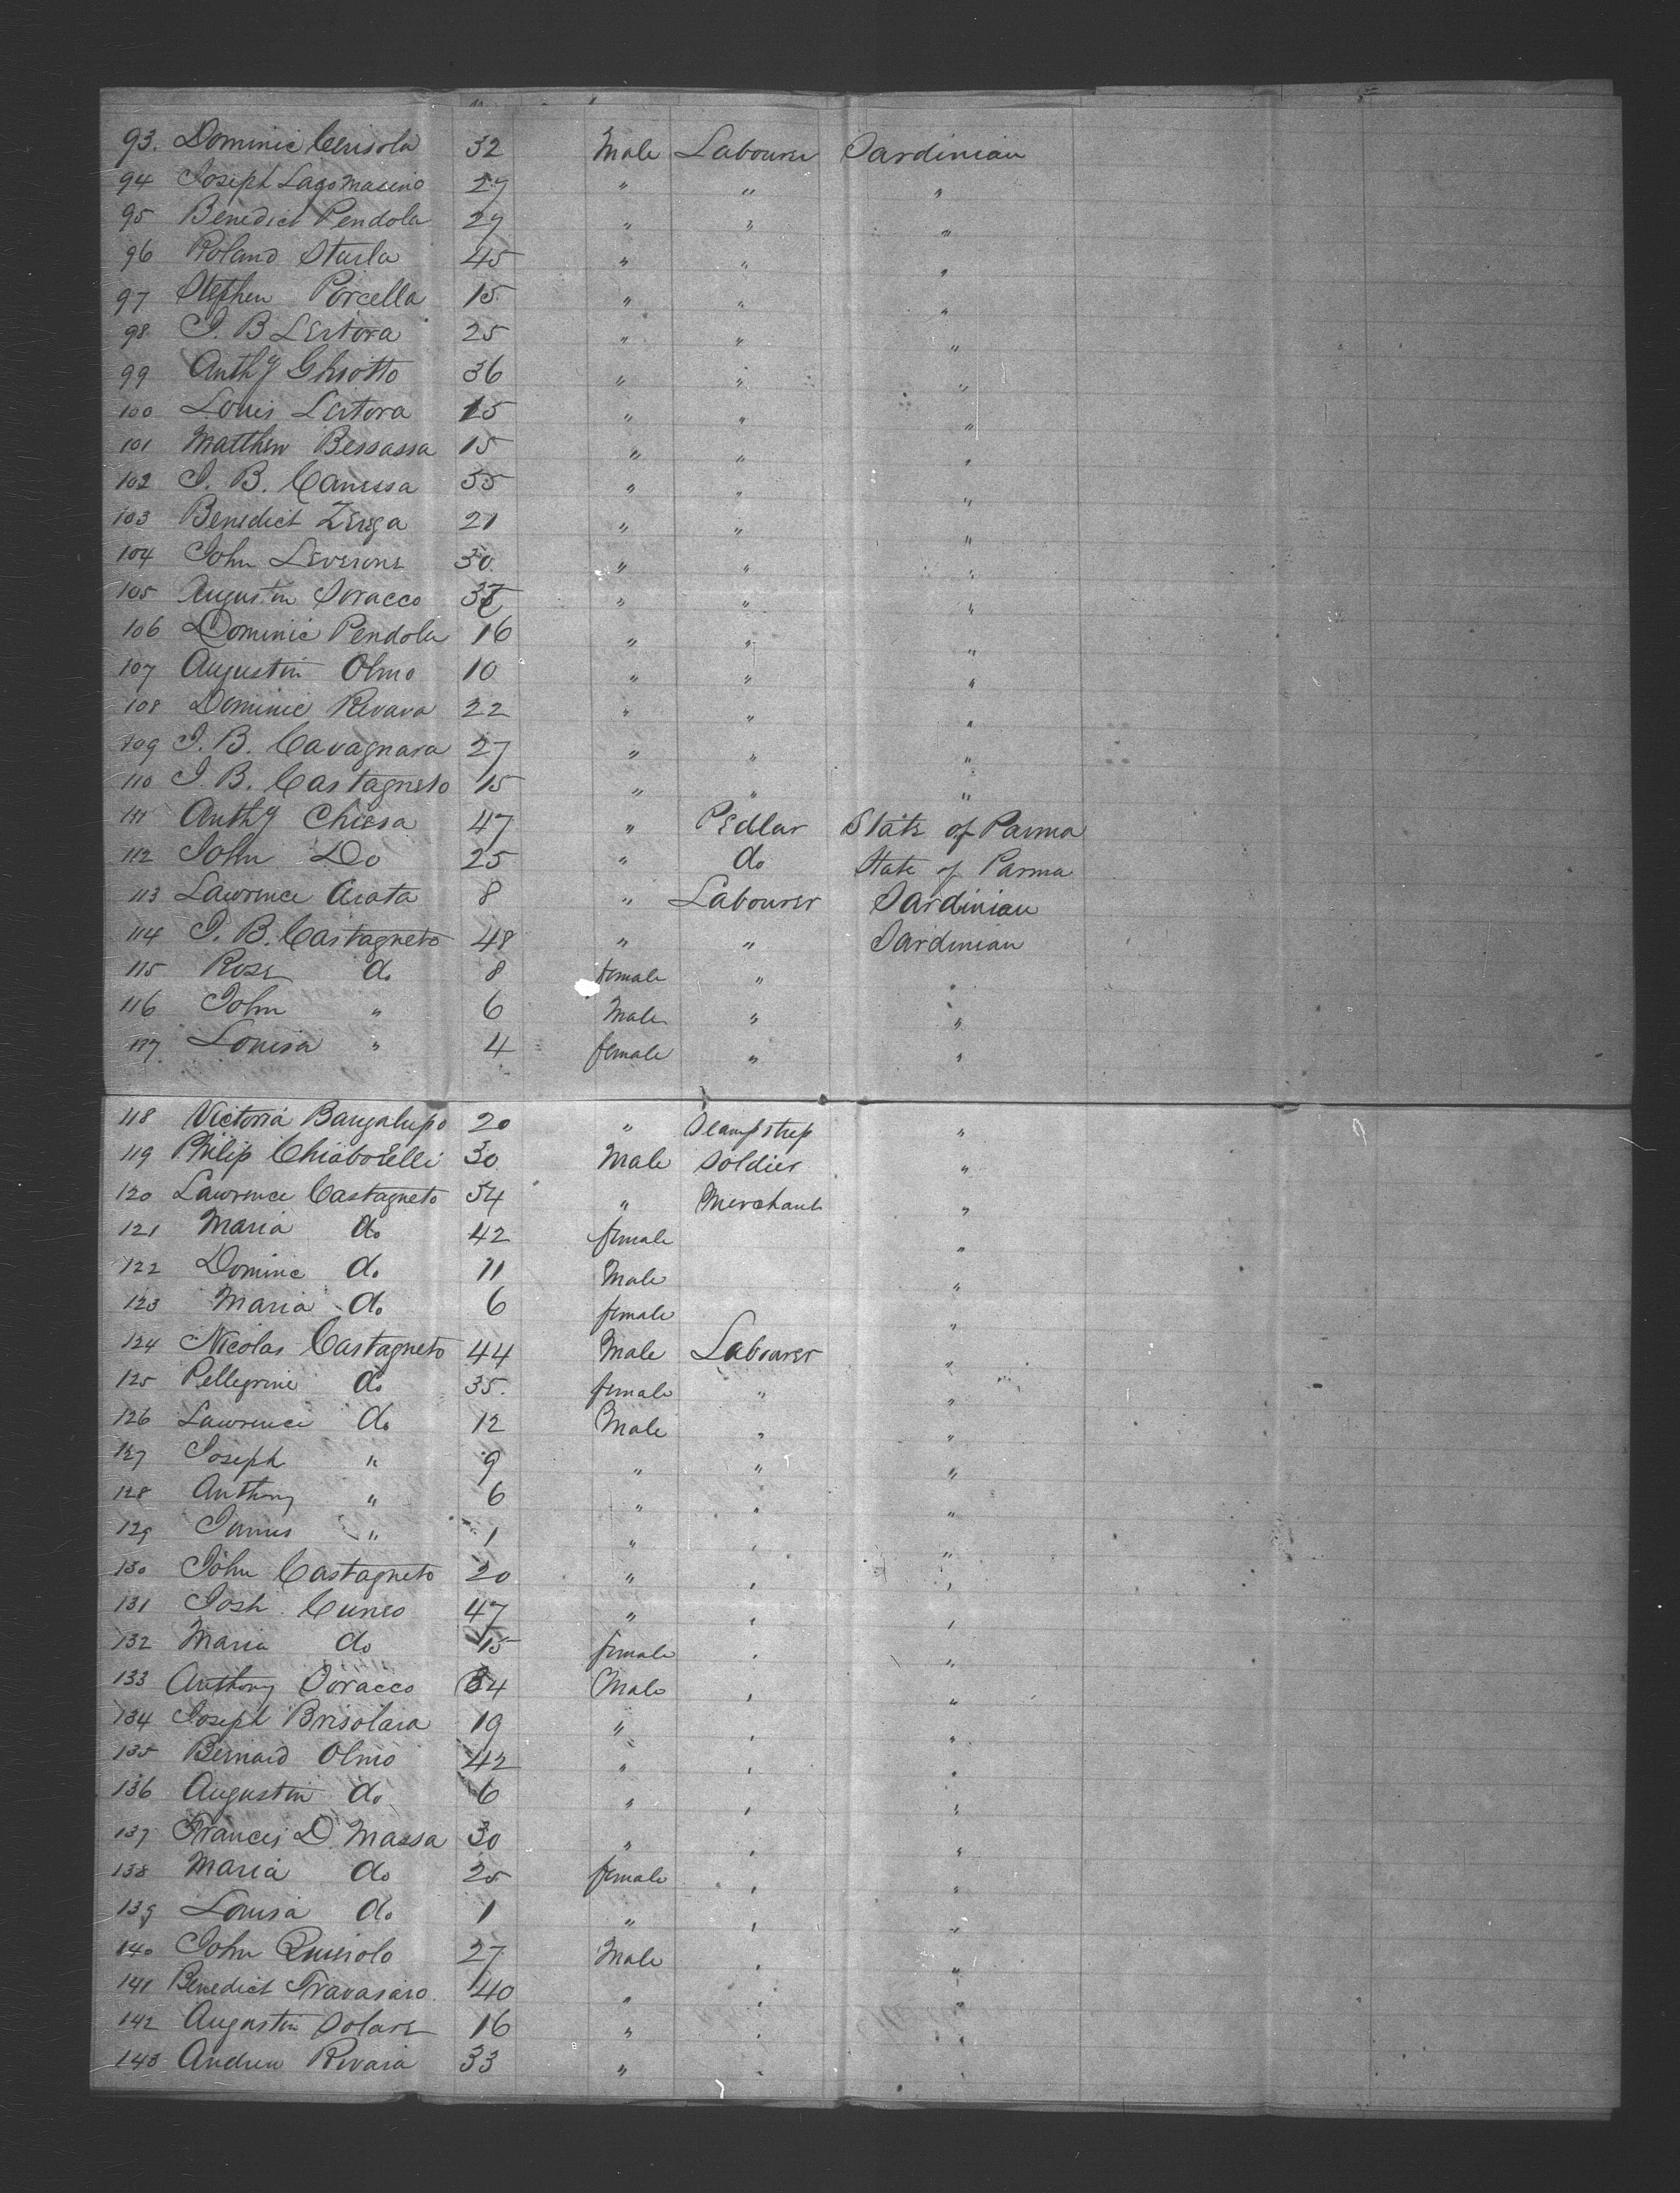 93. Dominic Cerisola 32 Male Labourer Sardinian
94 Joseph Lagomasino 27 " " "
95 Benedict Pendola 27 " " "
96 Roland Sturla 45 " " "
97 Stephen Porcella 15 " " "
98 J. B Lertora 25 " " "
99 Anthy Ghiotto 36 " " "
100 Louis Lertora 15 " " "
101 Matthew Bessassa 15 " " "
102 J. B. Canessa 35 " " "
103 Benedict Zerega 21 " " "
104 John Leverone 30 " " "
105 Augustin Soracco " " "
106 Dominic Pendola 16 " " "
107 Augustin Olmo 10 " " "
108 Dominic Revava 22 " " "
109 J. B. Cavagnara 27 " " "
110 J. B. Castagneto 15 " " "
111 Anthy Chiesa 47 " Pedlar State of Parma
112 John Do 25 " do State of Parma
113 Lawrence Arata 8 " Labourer Sardinian
114 J. B. Castagneto 48 " " Sardinian
115 Rose do 8 female " "
116 John " 6 Male " "
117. Louisa " 4 female " "
118 Victoria Bangalupo 20 " "
119 Philip Chiaborelli 30 Male Soldier "
120 Lawrence Castagneto 54 " Merchant "
121 Maria do 42 female "
122 Dominc do 11 Male "
123 Maria do 6 female "
124 Nicolas Castagneto 44 Male Labourer "
125 Pellegrine do 35. female " "
126 Lawrence do 12 Male " "
127 Joseph " 9 " " "
128 Anthony " 6 " " "
129 James " 1 " " "
130 John Castagneto 20 " " "
131 Josh Cuneo 47 " " "
132 Maria do 15 female " "
133 Anthony Soracco 34 Male " "
134 Joseph Brisolara 19 " " "
135 Bernard Olmo 42 " " "
136 Augustin do 6 " " "
137 Francis D Massa 30 " " "
138 Maria do 25 female " "
139 Louisa do 1 " " "
140 John Queirolo 27 Male " "
141 Benedict Travasaro 40 " " "
142 Augustin Solare 16 " " "
143 Andrew Revara 33 " " "